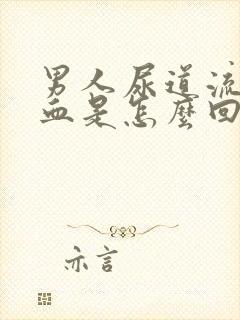 男人尿道流
血是怎麼回
亦言